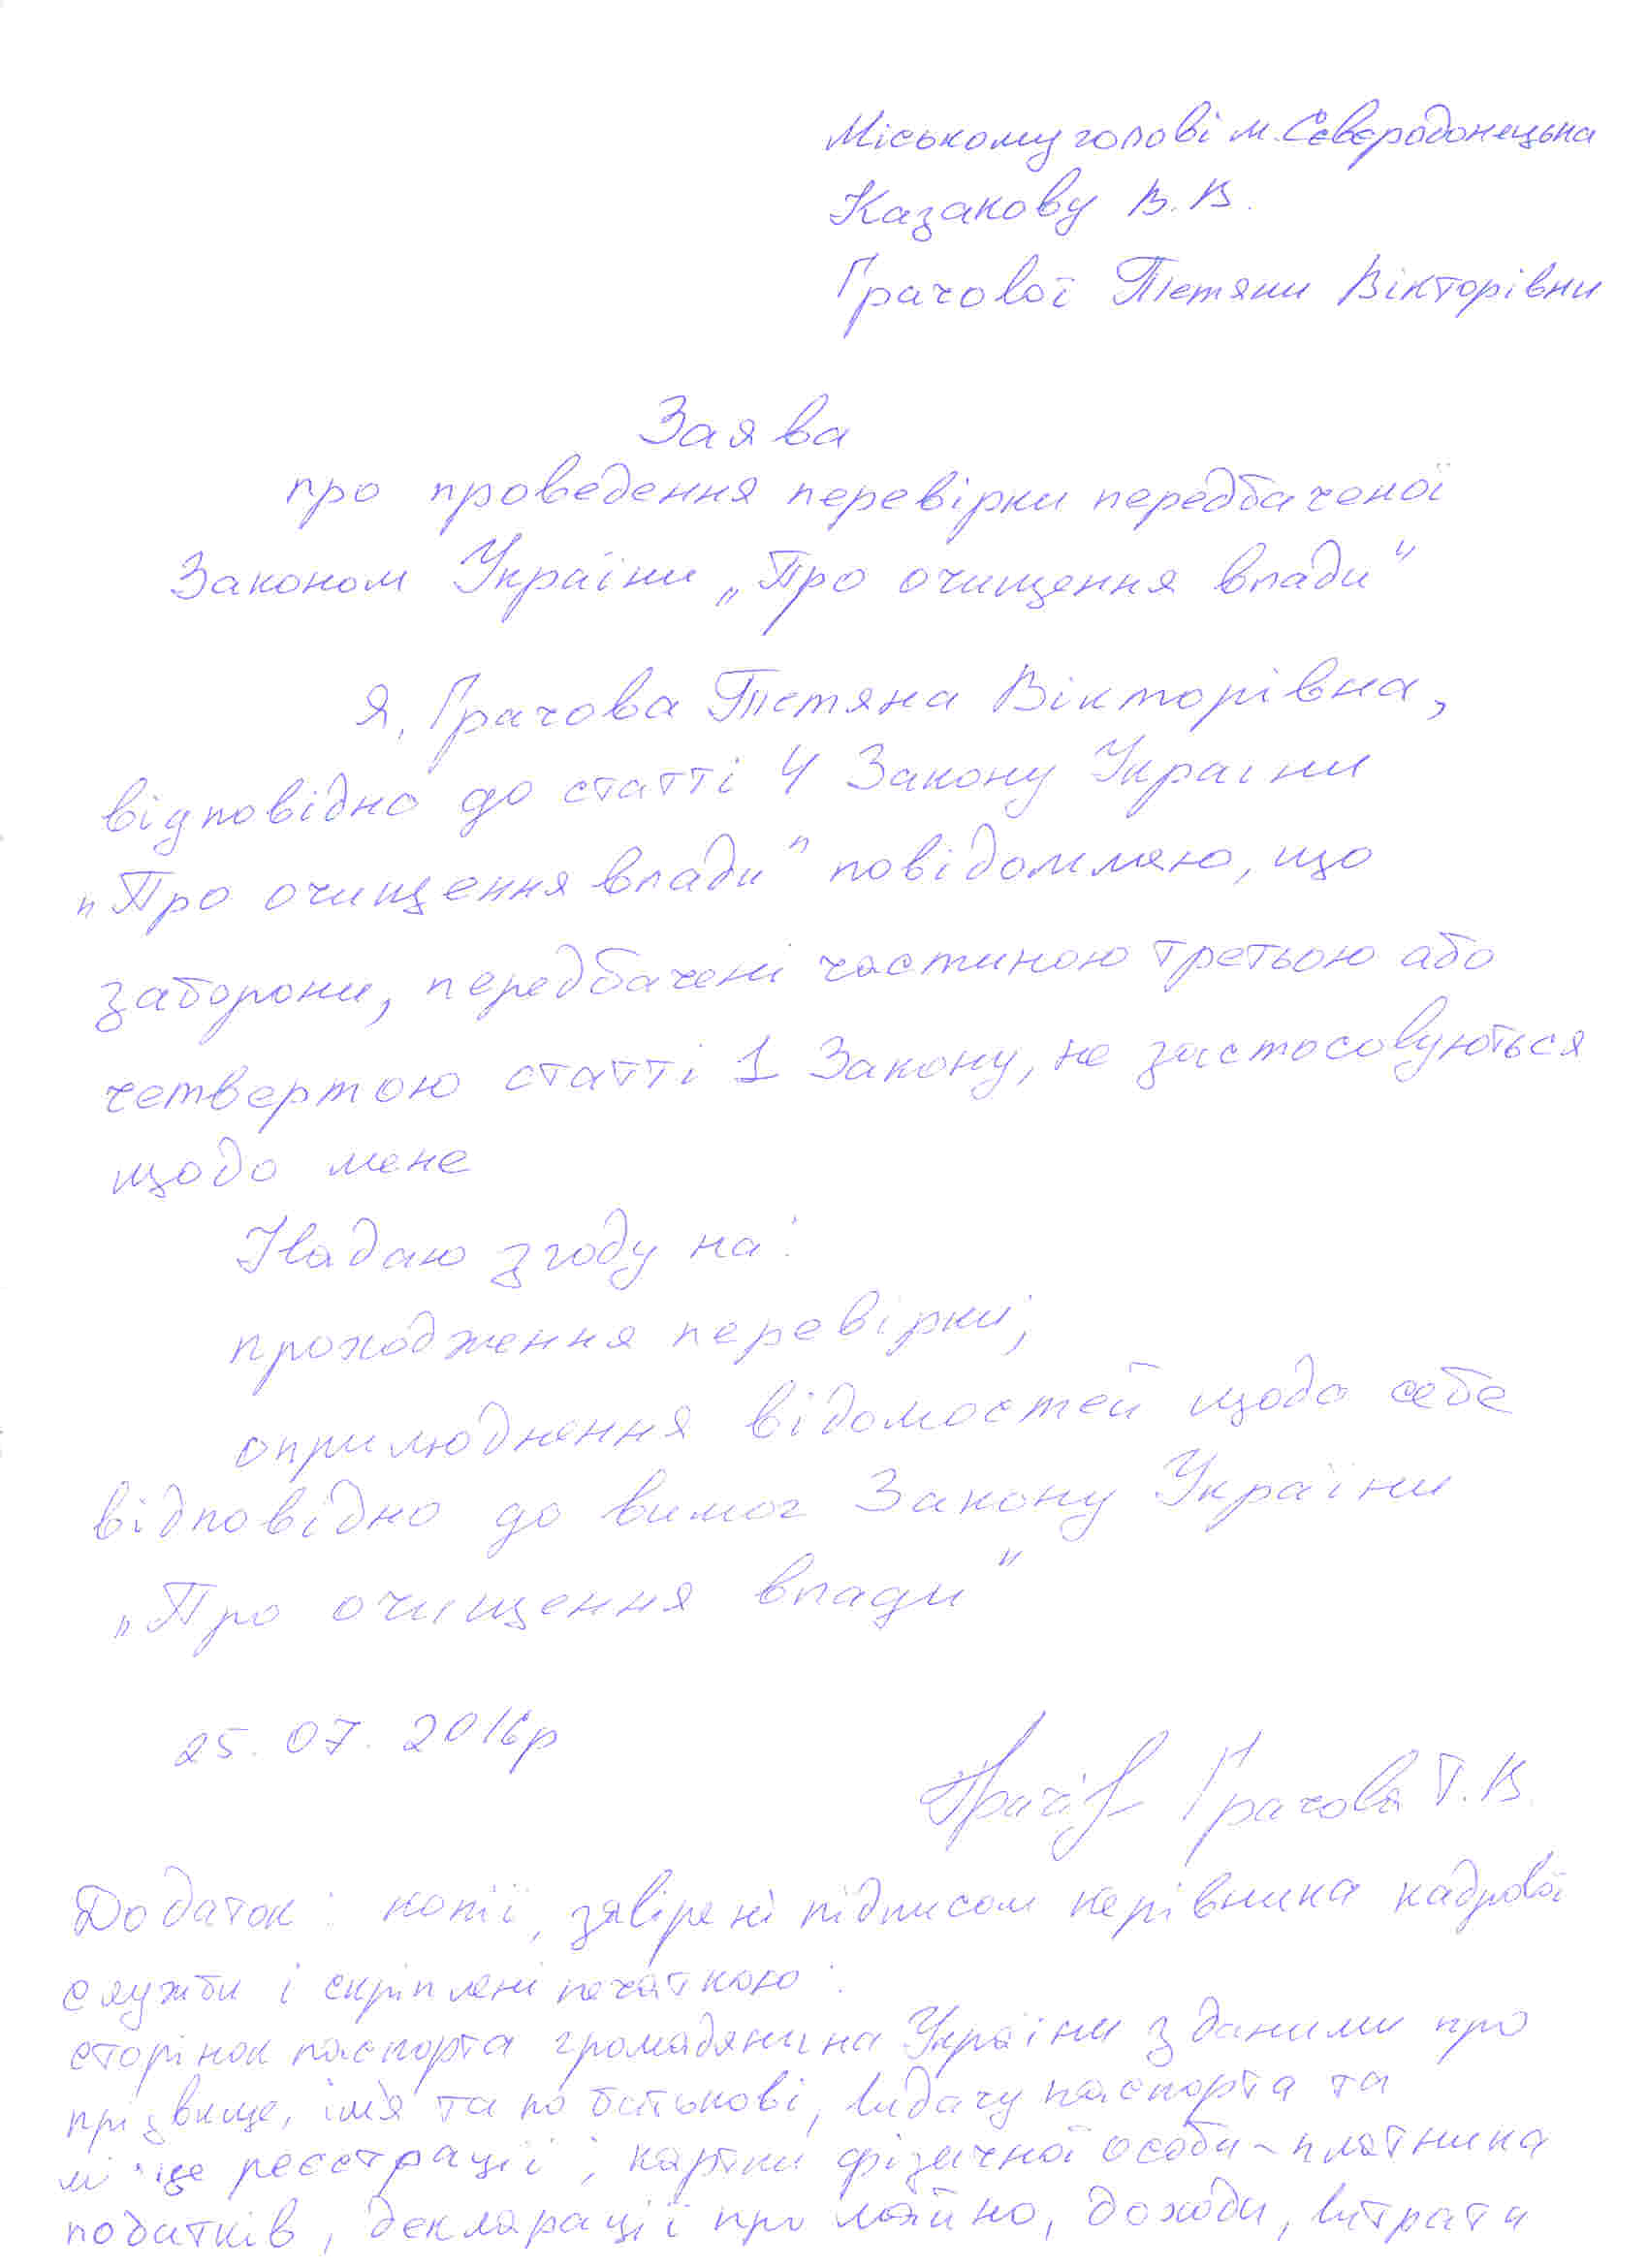 Міському голові м. Сєвєродонецька
Казакову В. В.
Грачової Тетяни Вікторівни
Заява
про проведення перевірки передбаченої
Законом України „Про очищення влади"
Я, Грачова Тетяна Вікторівна,
відповідно до статті 4 Закону України
„Про очищення влади" повідомляю, що
заборони, передбачені частиною третьою або
четвертою статті 1 Закону, не застосовуються
щодо мене
Надаю згоду на:
проходження перевірки;
оприлюднення відомостей щодо себе
відповідно до вимог Закону України
„Про очищення влади"
25. 07. 2016р
Грачова Т. В.
Додаток: копії, завірені підписом керівника кадрової
служби і скріплені печаткою:
сторінок паспорта громадянина України з даними про
прізвище, ім'я та по батькові, видачу паспорта та
місце реєстрації; картки фізичної особи - платника
податків, декларації про майно, доходи, витрати